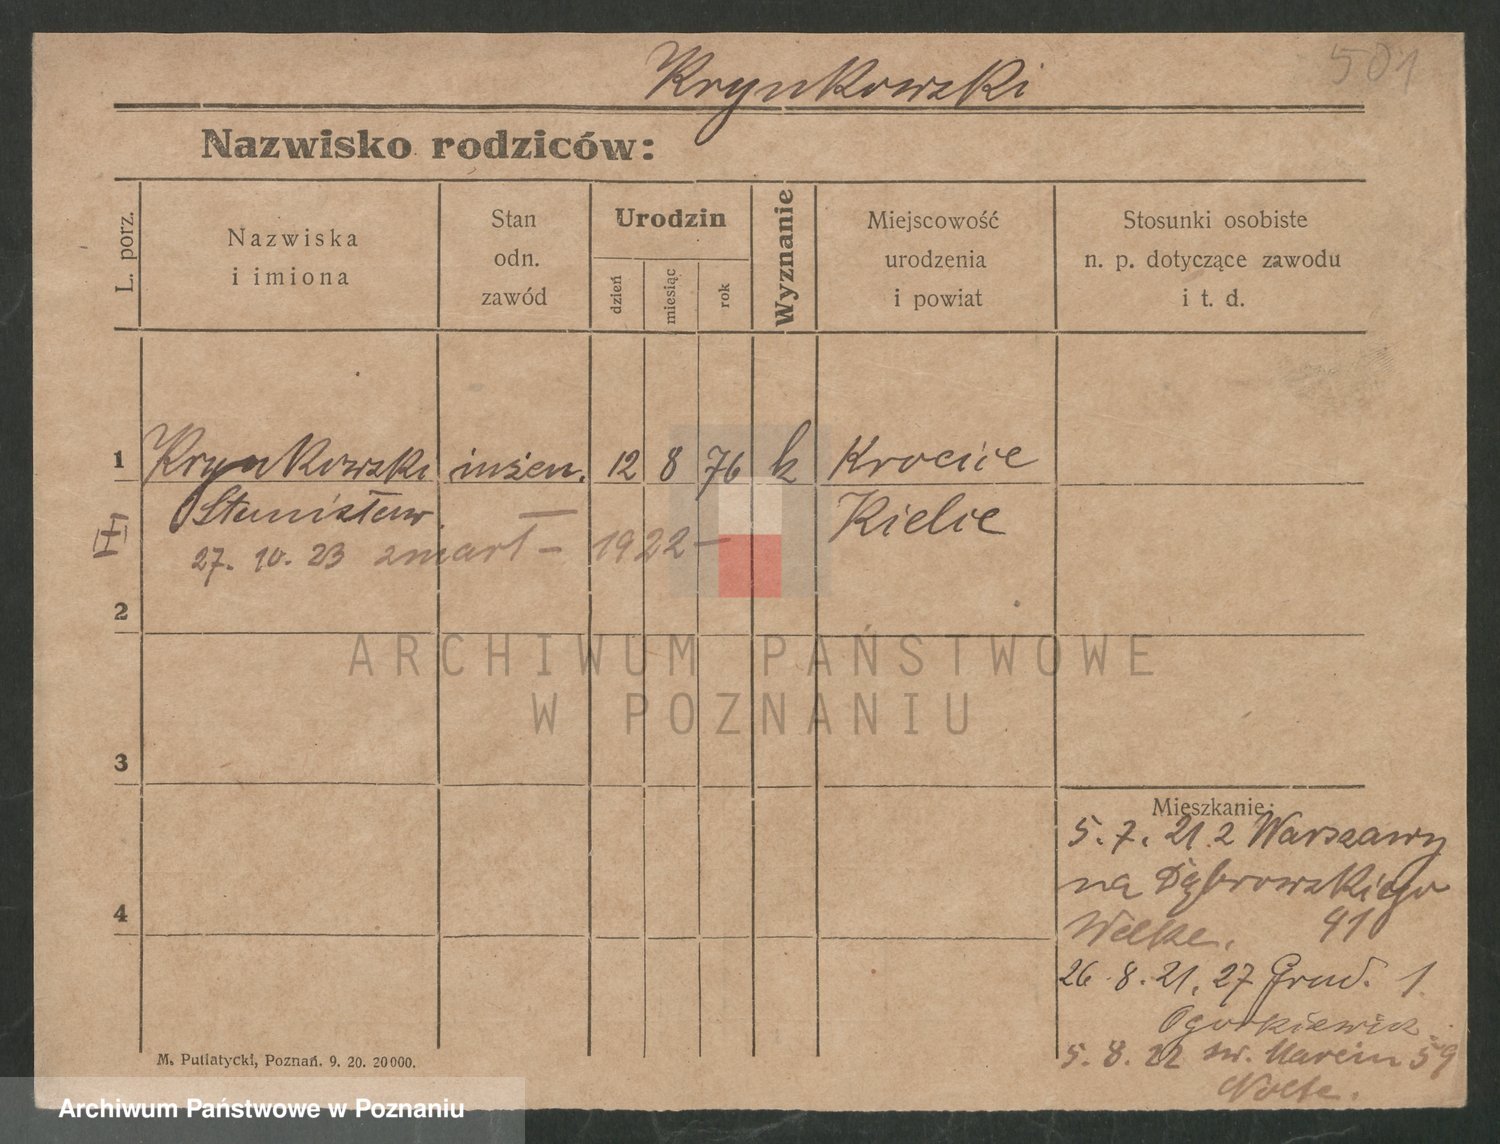 501
Krynkowski
Nazwisko rodziców:
L. porz.
Nazwiska
i imiona
Stan
odn.
zawód
Urodzin
dzień
miesiąc
rok
Wyznanie
Miejscowość
urodzenia
i powiat
Stosunki osobiste
n. p. dotyczące zawodu
i t. d.
1 Krynkowski inżen. 12 8 76 k Krocice
Stanisław Kielce
27. 10. 23 zmarł – 1922 –
2
3
4
Mieszkanie:
5. 7. 21 z Warszawy
na Dąbrowskiego
Welke. 91
26. 8. 21. 27 Grud. 1
Ogórkiewicz
5. 8. 22 św. Marcin 59
Nolte.
M. Putiatycki, Poznań. 9. 20. 20000.
ARCHIWUM PAŃSTWOWE
W POZNANIU
Archiwum Państwowe w Poznaniu